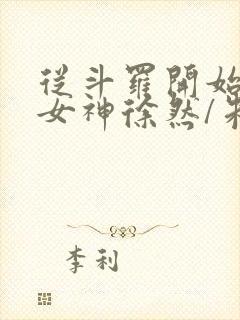 從斗羅開始
女神徐然/
李利